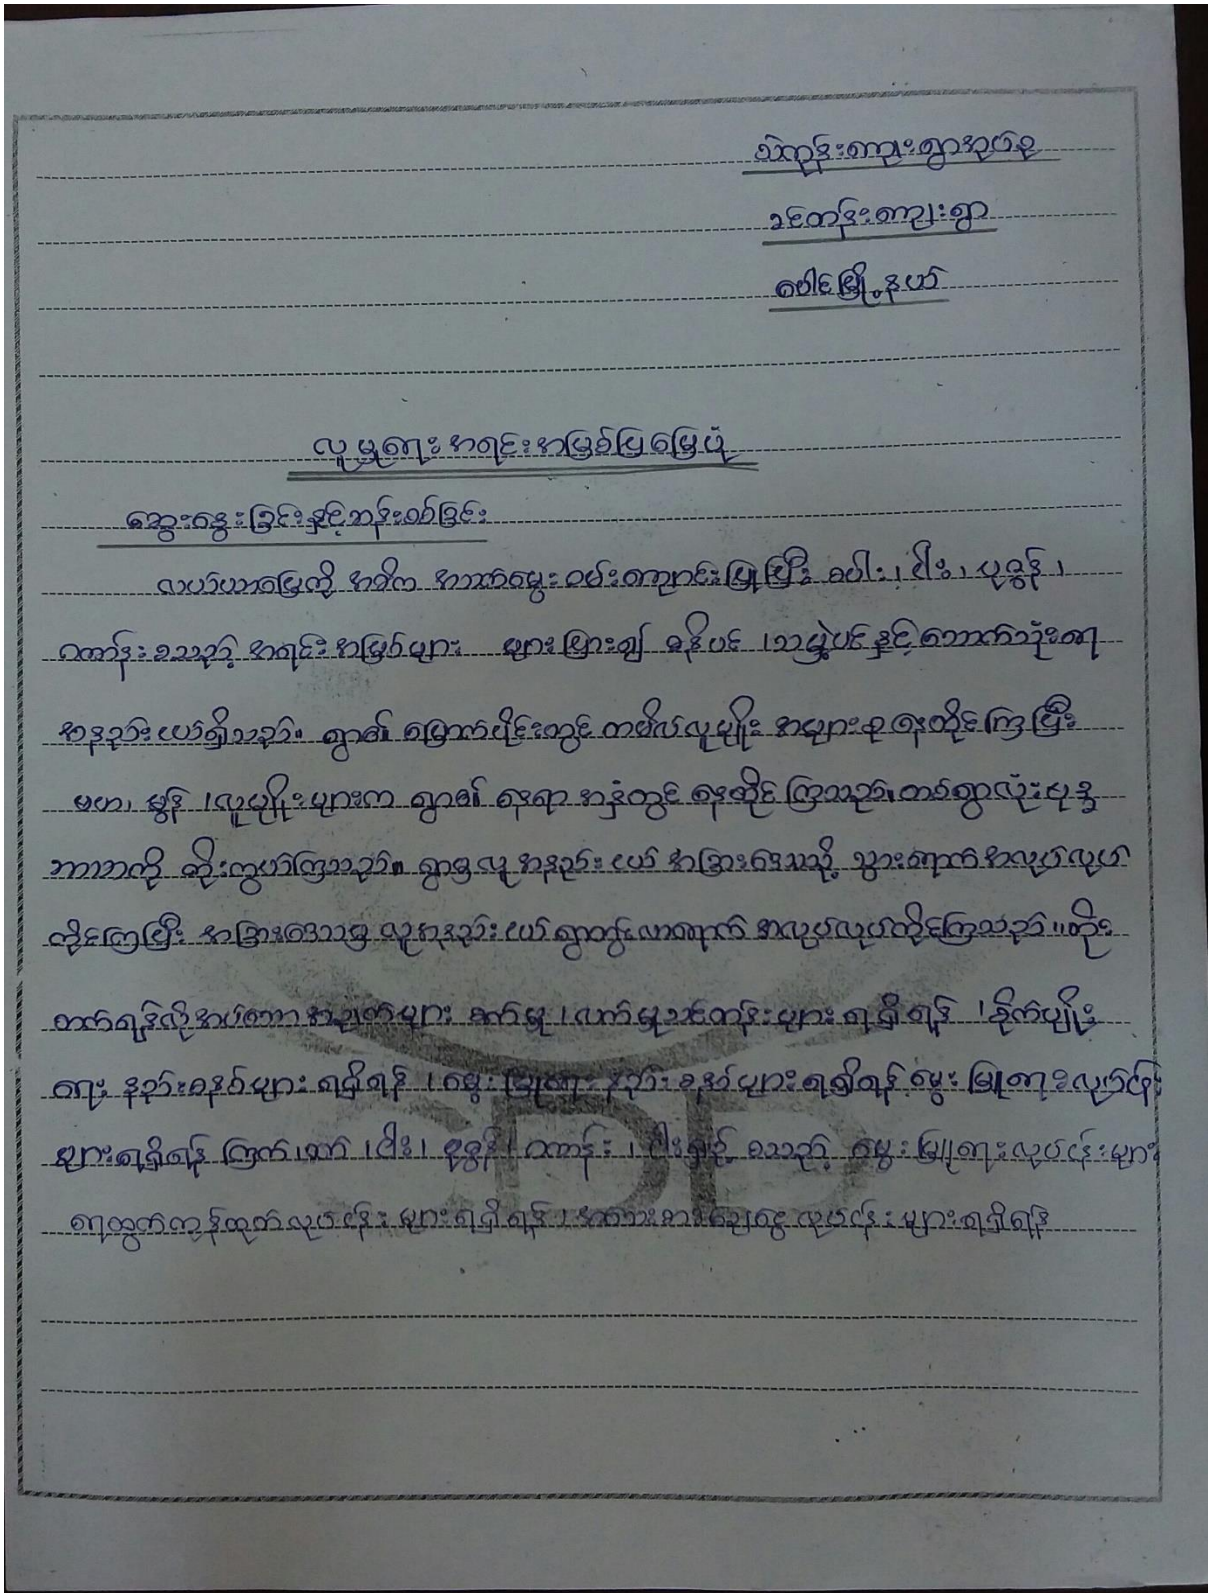 သဲကုန်းကျေးရွာအုပ်စု
ခင်တန်းကျေးရွာ
ပေါင်မြို့နယ်
လူမှုရေးအရင်းအမြစ်ပြမြေပုံ
ဆွေးနွေးခြင်းနှင့်ဆန်းစစ်ခြင်း
လယ်ယာမြေကို အဓိက အသက်မွေးဝမ်းကျောင်းပြုပြီး စပါး၊ ငါး၊ ပုဇွန်၊
ဂဏန်းစသည့် အရင်းအမြစ်များ များပြား၍ ဓနိပင် ၊သမ္ဘဲပင်နှင့်သောက်သုံးရေ
အနည်းငယ်ရှိသည်။ ရွာ၏ မြောက်ပိုင်းတွင် တမီလ်လူမျိုး အများစုနေထိုင်ကြပြီး
ဗမာ၊ မွန် ၊လူမျိုးများက ရွာ၏ နေရာ အနှံ့တွင် နေထိုင် ကြသည်။တစ်ရွာလုံးဗုဒ္ဓ
ဘာသာကို ကိုးကွယ်ကြသည်။ ရွာမှလူ အနည်းငယ် အခြားဒေသသို့ သွားရောက်အလုပ်လုပ်
ကိုင်ကြပြီး အခြားဒေသမှ လူအနည်းငယ် ရွာတွင်းလာရောက် အလုပ်လုပ်ကိုင်ကြသည်။တိုး
တက်ရန်လိုအပ်သောအချက်များ စက်မှု ၊လက်မှုသင်တန်းများ ရရှိရန် ၊စိုက်ပျိုး
ရေး နည်းစနစ်များ ရရှိရန် ၊ မွေးမြူရေး နည်းစနစ်များ ရရှိရန် မွေးမြူရေးလုပ်ငန်း
များရရှိရန် ကြက်၊ဝက် ၊ငါး၊ ပုဇွန်၊ ဂဏန်း ၊ ငါးရှဉ့် စသည့် မွေးမြူရေးလုပ်ငန်းများ
ရေထွက်ကုန်ထုတ်လုပ်ငန်းများရရှိရန် ၊ အသေးစားချေးငွေ လုပ်ငန်းများရရှိရန်